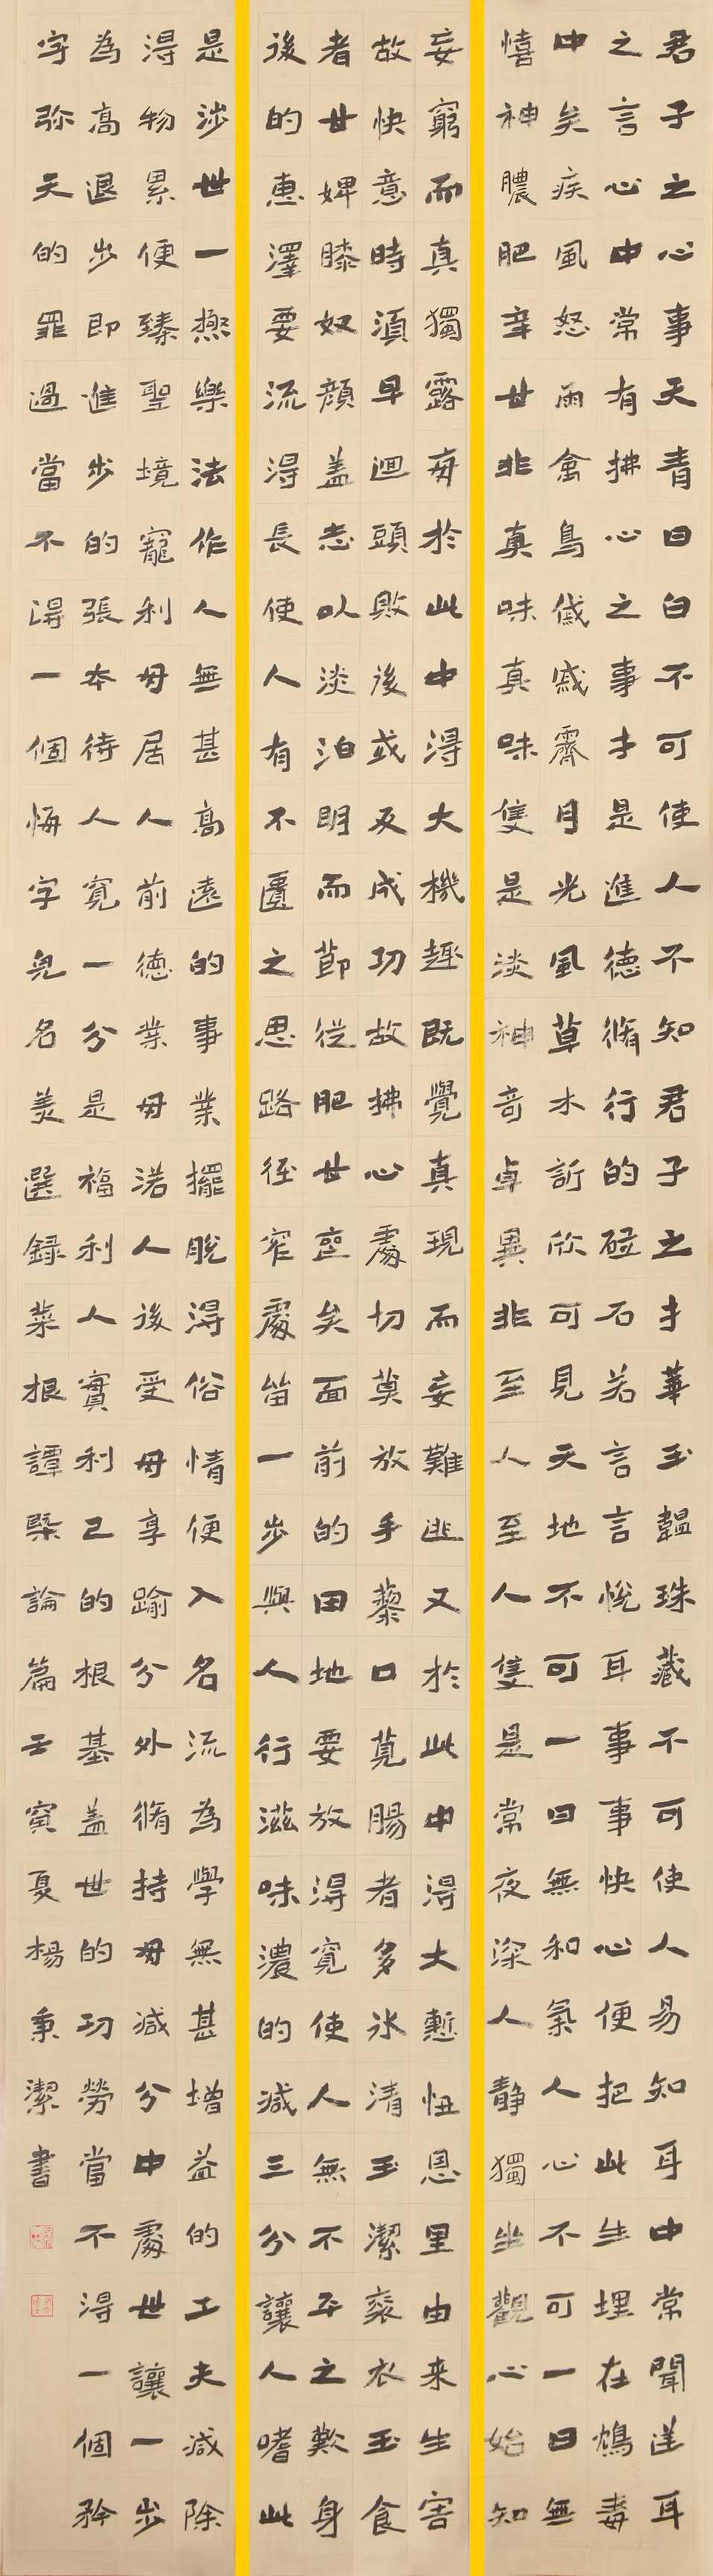 君子之心事天青日白不可使人不知君子之才華玉韞珠藏不可使人易知耳中常聞逆耳
之言心中常有拂心之事才是進德脩行的砥石若言言悅耳事事快心便把此生埋在鴆毒
中矣疾風怒雨禽鳥戚戚霽月光風草木訢欣可見天地不可一日無和氣人心不可一日無
憘神醲肥辛甘非真味真味隻是淡神奇卓異非至人至人隻是常夜深人靜獨坐觀心始知
妄窮而真獨露每於此中得大機趣既覺真現而妄難逃又於此中得大慙忸恩里由来生害
故快意時湏早迴頭敗後或反成功故拂心處切莫放手藜口莧腸者多冰清玉潔袞衣玉食
者甘婢膝奴顔盖志以淡泊明而節從肥甘喪矣面前的田地要放得寬使人無不平之歎身
後的惠澤要流得長使人有不匱之思路徑窄處留一步與人行滋味濃的減三分讓人嗜此
是涉世一極樂法作人無甚高遠的事業擺脫得俗情便入名流為學無甚增益的工夫減除
得物累便臻聖境寵利毋居人前德業毋落人後受毋享踰分外脩持毋減分中處世讓一步
為高退步即進步的張本待人寬一分是福利人實利己的根基盖世的功勞當不得一個矜
字弥天的罪過當不得一個悔字完名美選錄菜根譚槩論篇壬寅夏楊秉潔書